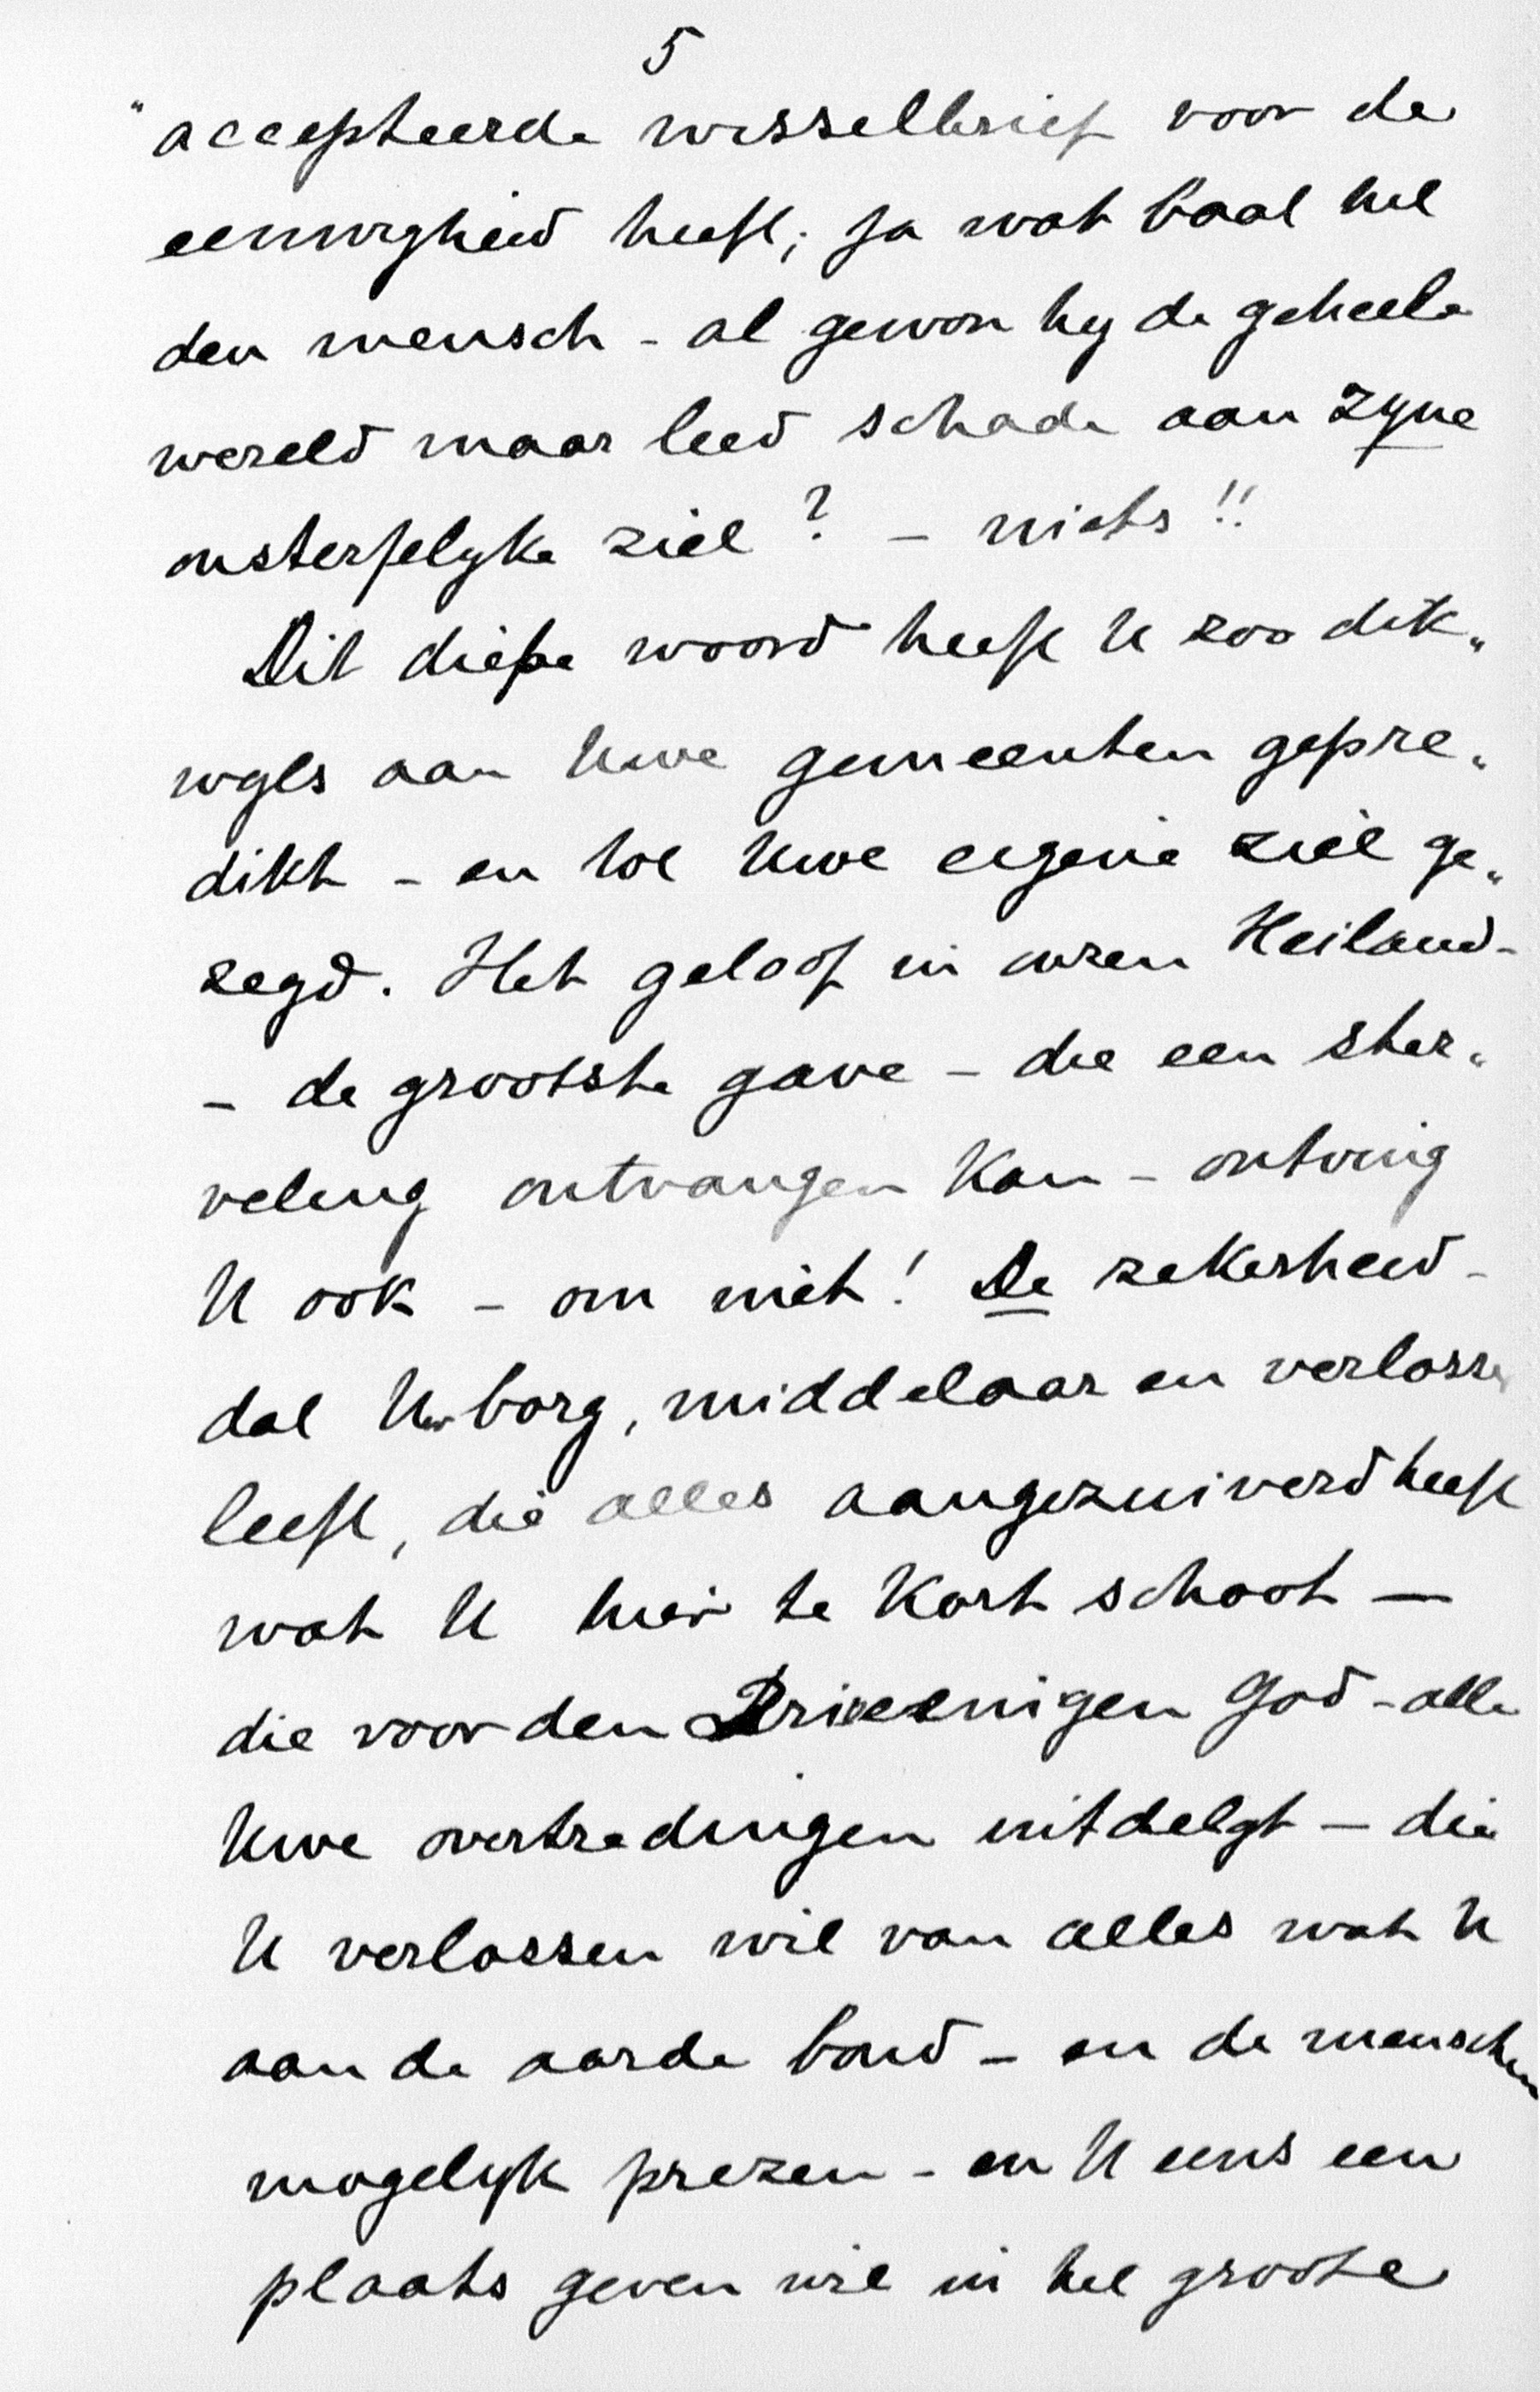 5
„accepteerde wisselbrief voor de
eeuwigheid heeft; ja wat baat het
den mensch - al gewon hy de geheele
wereld maar leed schade aan zyne
onsterfelyke ziel? - niets!!
Dit diepe woord heeft U zoo dik„
wyls aan Uwe gemeenten gepre„
dikt - en tot Uwe eigene ziel ge„
zegd. Het geloof in onzen Heiland -
- de grootste gave - die een ster„
veling ontvangen kan - ontving
U ook - om niet! De zekerheid -
dat Uw borg, middelaar en verlosser
leeft, die alles aangezuiverd heeft
wat U hier te kort schoot —
die voor den Drieeenigen God - alle
Uwe overtredingen uitdelgt — die
U verlossen wil van alles wat U
aan de aarde bond - en de menschen
mogelyk prezen - en U eens een
plaats geven wil in het groote